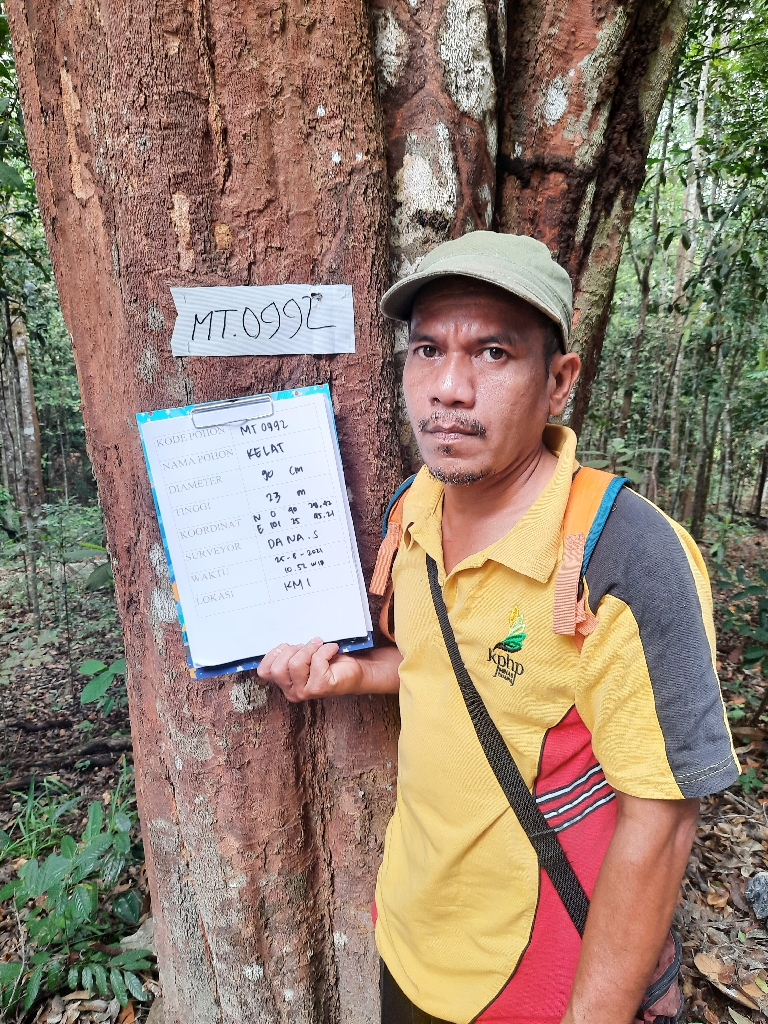 MT.0992
KODE POHON MT 0992
NAMA POHON KELAT
DIAMETER 90 cm
TINGGI 23 m
KOORDINAT N 0 40 28.42
E 101 25 45.21
SURVEYOR DANA.S
WAKTU 25-8-2021
10.52 WIB
LOKASI KM 1
kphp
MINAS